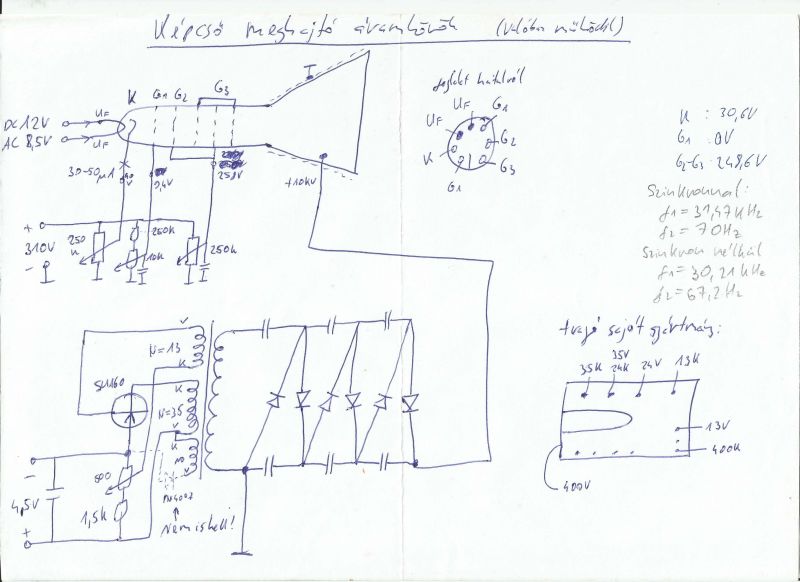 Képcső meghajtó áramkörök (Valóban működik!)
K G1 G2 G3
DC 12V UF
AC 8,5V UF
30-50µA
0,4V
251V
T
+10KV
+
310V
-
250K
250K
10K
250K
foglalat hátulról
UF
UF G1
K G2
G1 G3
K : 30,6V
G1 : 0V
G2-G3: 248,6V
Szinkronnal:
f1=31,47KHz
f2=70Hz
Szinkron nélkül
f1=30,21KHz
f2=67,2Hz
trafó saját gyártmány:
35K 35V 24V 13K
24K
13V
400K
400V
V
N=13
K
SL1160
K
N=35
V
K
V
-
4,5V
+
500
1,5K
Nem is kell!